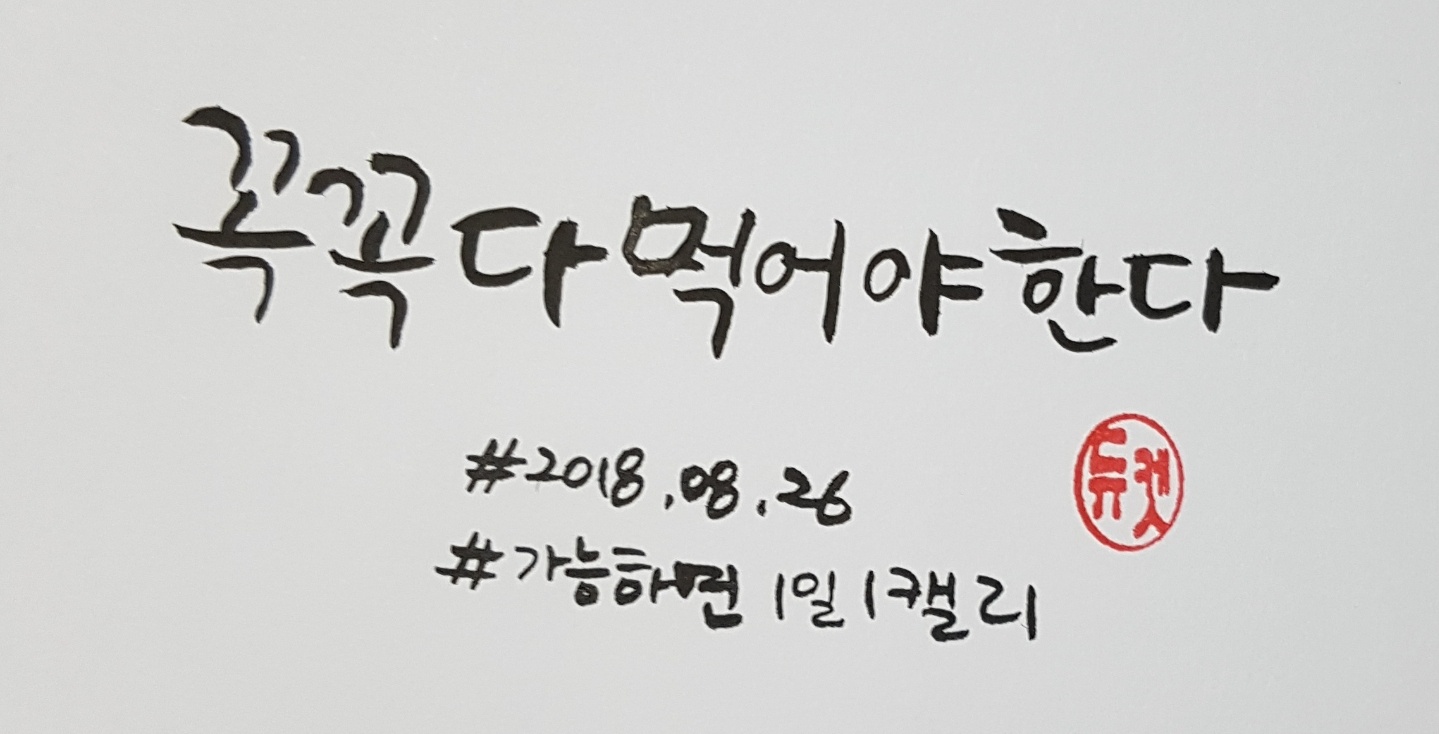 꼭꼭다먹어야한다
#2018.08.26
듀켓
#가능하면 1일1캘리